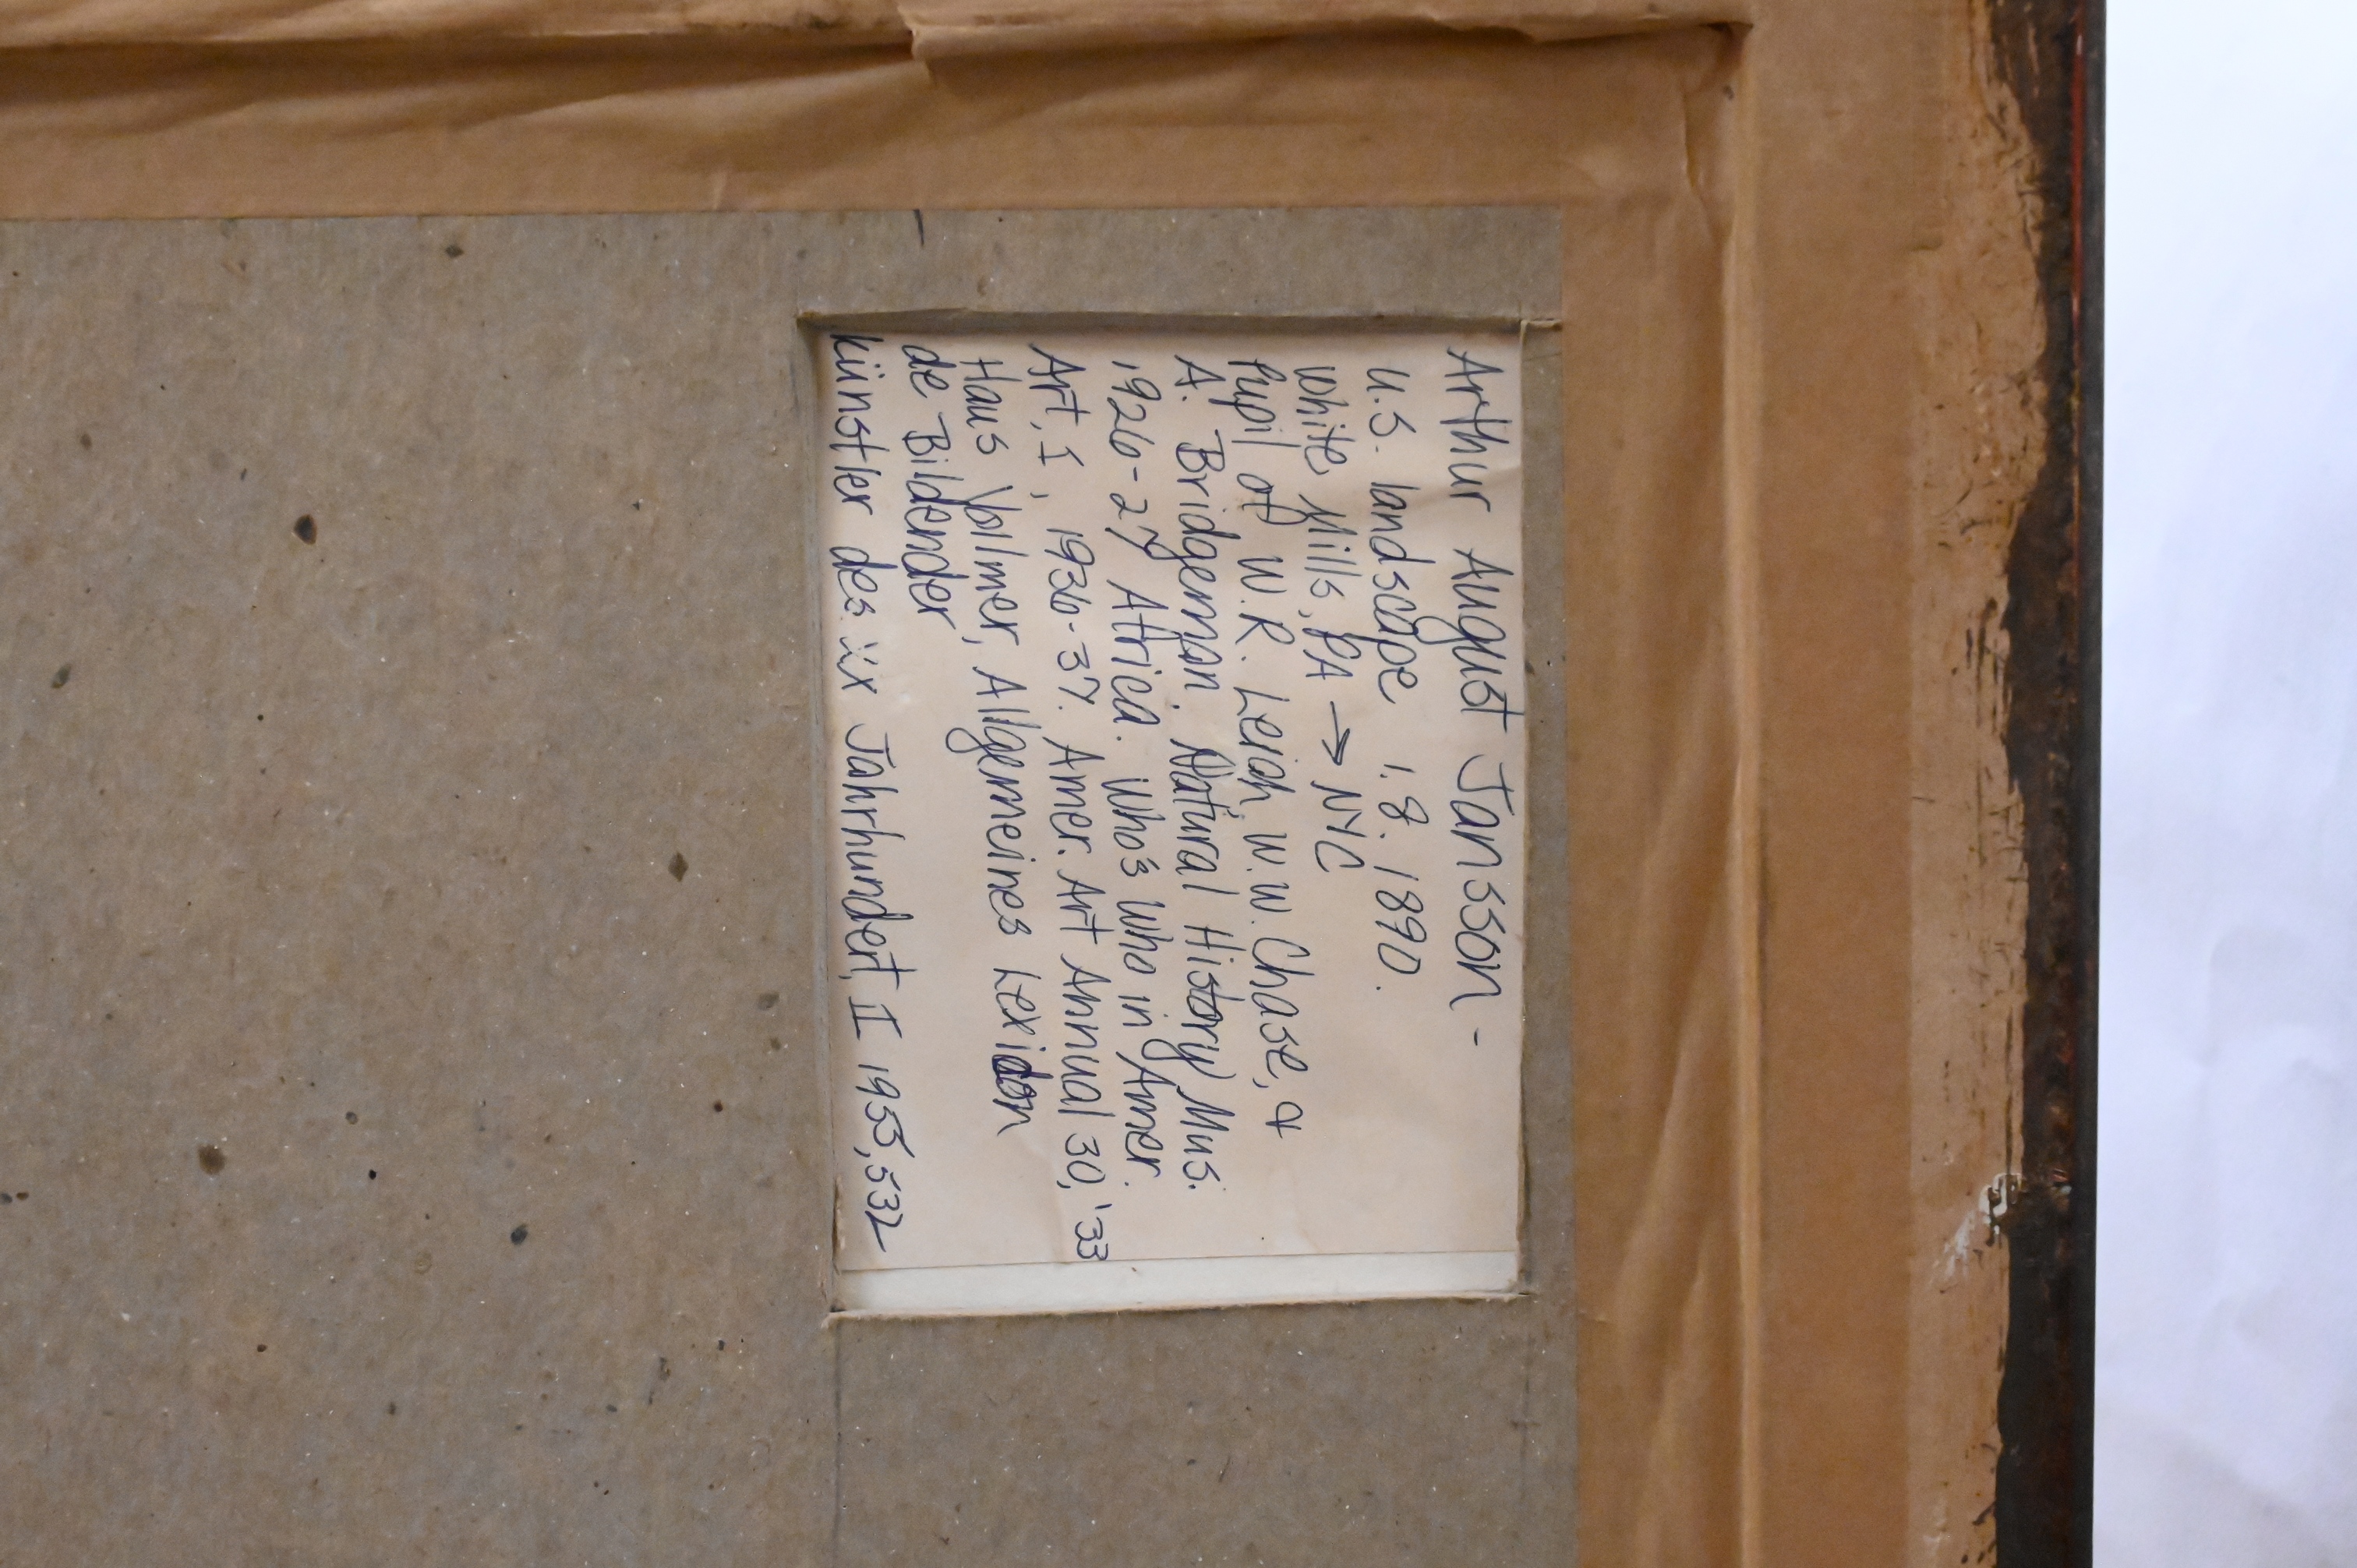 Arthur August Jansson -
U.S. landscape, 1.8.1890.
White Mills, PA → NYC
Pupil of W.R. Leigh, W.W. Chase, &
A. Bridgemon. Natural History Mus.
1926-27 Africa. Who's Who in Amer.
Art, I, 1936-37. Amer. Art Annual 30, '33
Hans Vollmer, Allgemeines Lexidon
de Bildender
künstler des xx Jahrhundert, II 1955, 532